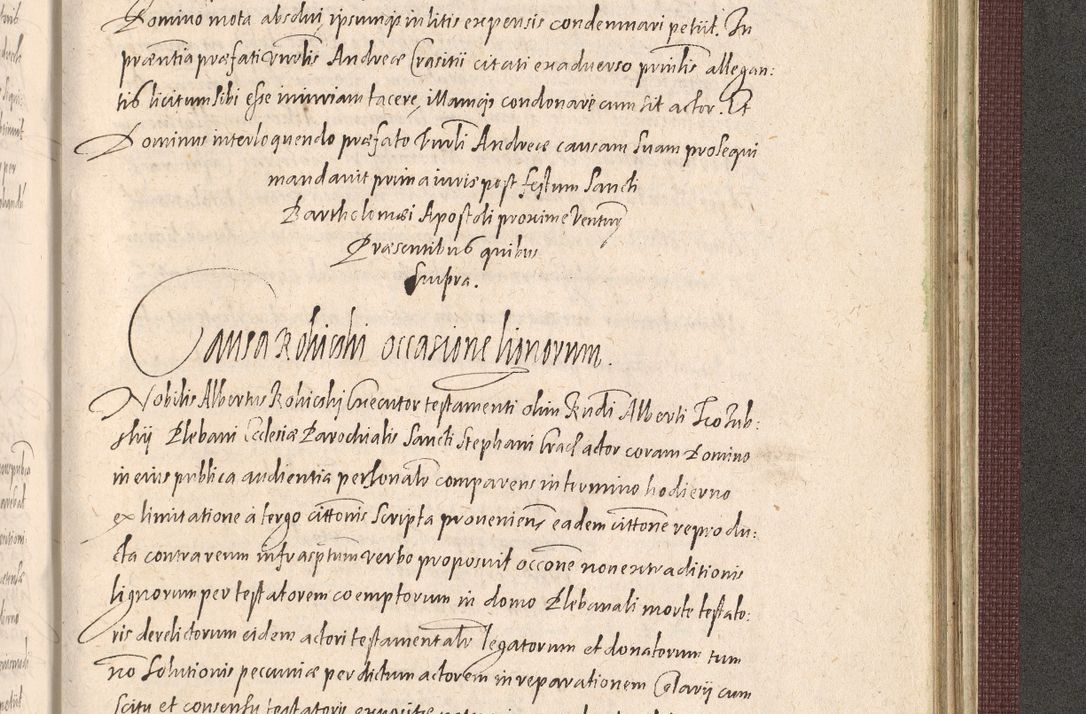 Domino mota absolui ipsumqȝ in litis expensis condemnari petiit. In
præntia præfati Vnrlis Andreæ Crasitii citati ex aduerso prinlis allegan:
tis licitum sibi esse iniuriam tacere, illamqȝ condonare cum sit actor. Et
Dominus interloquendo præfato Vnrli Andreæ causam suam prosequi
mandauit prima iuris post festum Sancti
Bartholomæi Apostoli proxime ventur
Præsentibus quibus
supra.
Causa Rohicshi occasione lignorum.
Nobilis Albertus Rohicshi Executor testamenti olim Rndi Alberti Frozub:
shij Plebani Ecclesiæ Parochialis Sancti Stephani Crac actor coram Domino
in eius publica audientia personalr comparens in termino hodierno
ex limitatione à tergo cittonis scripta prouenien eadem cittone reprodu:
cta contra reum infrasptum verbo proposuit occone non extraditionis
lignorum per testatorem coemptorum in domo Plebanali morte testato:
ris derelictorum eidem actori testamentalr legatorum et donatorum tum
no solutionis pecuniæ per dictum actorem in reparationem Clarij cum
scitu et consensu testatoris